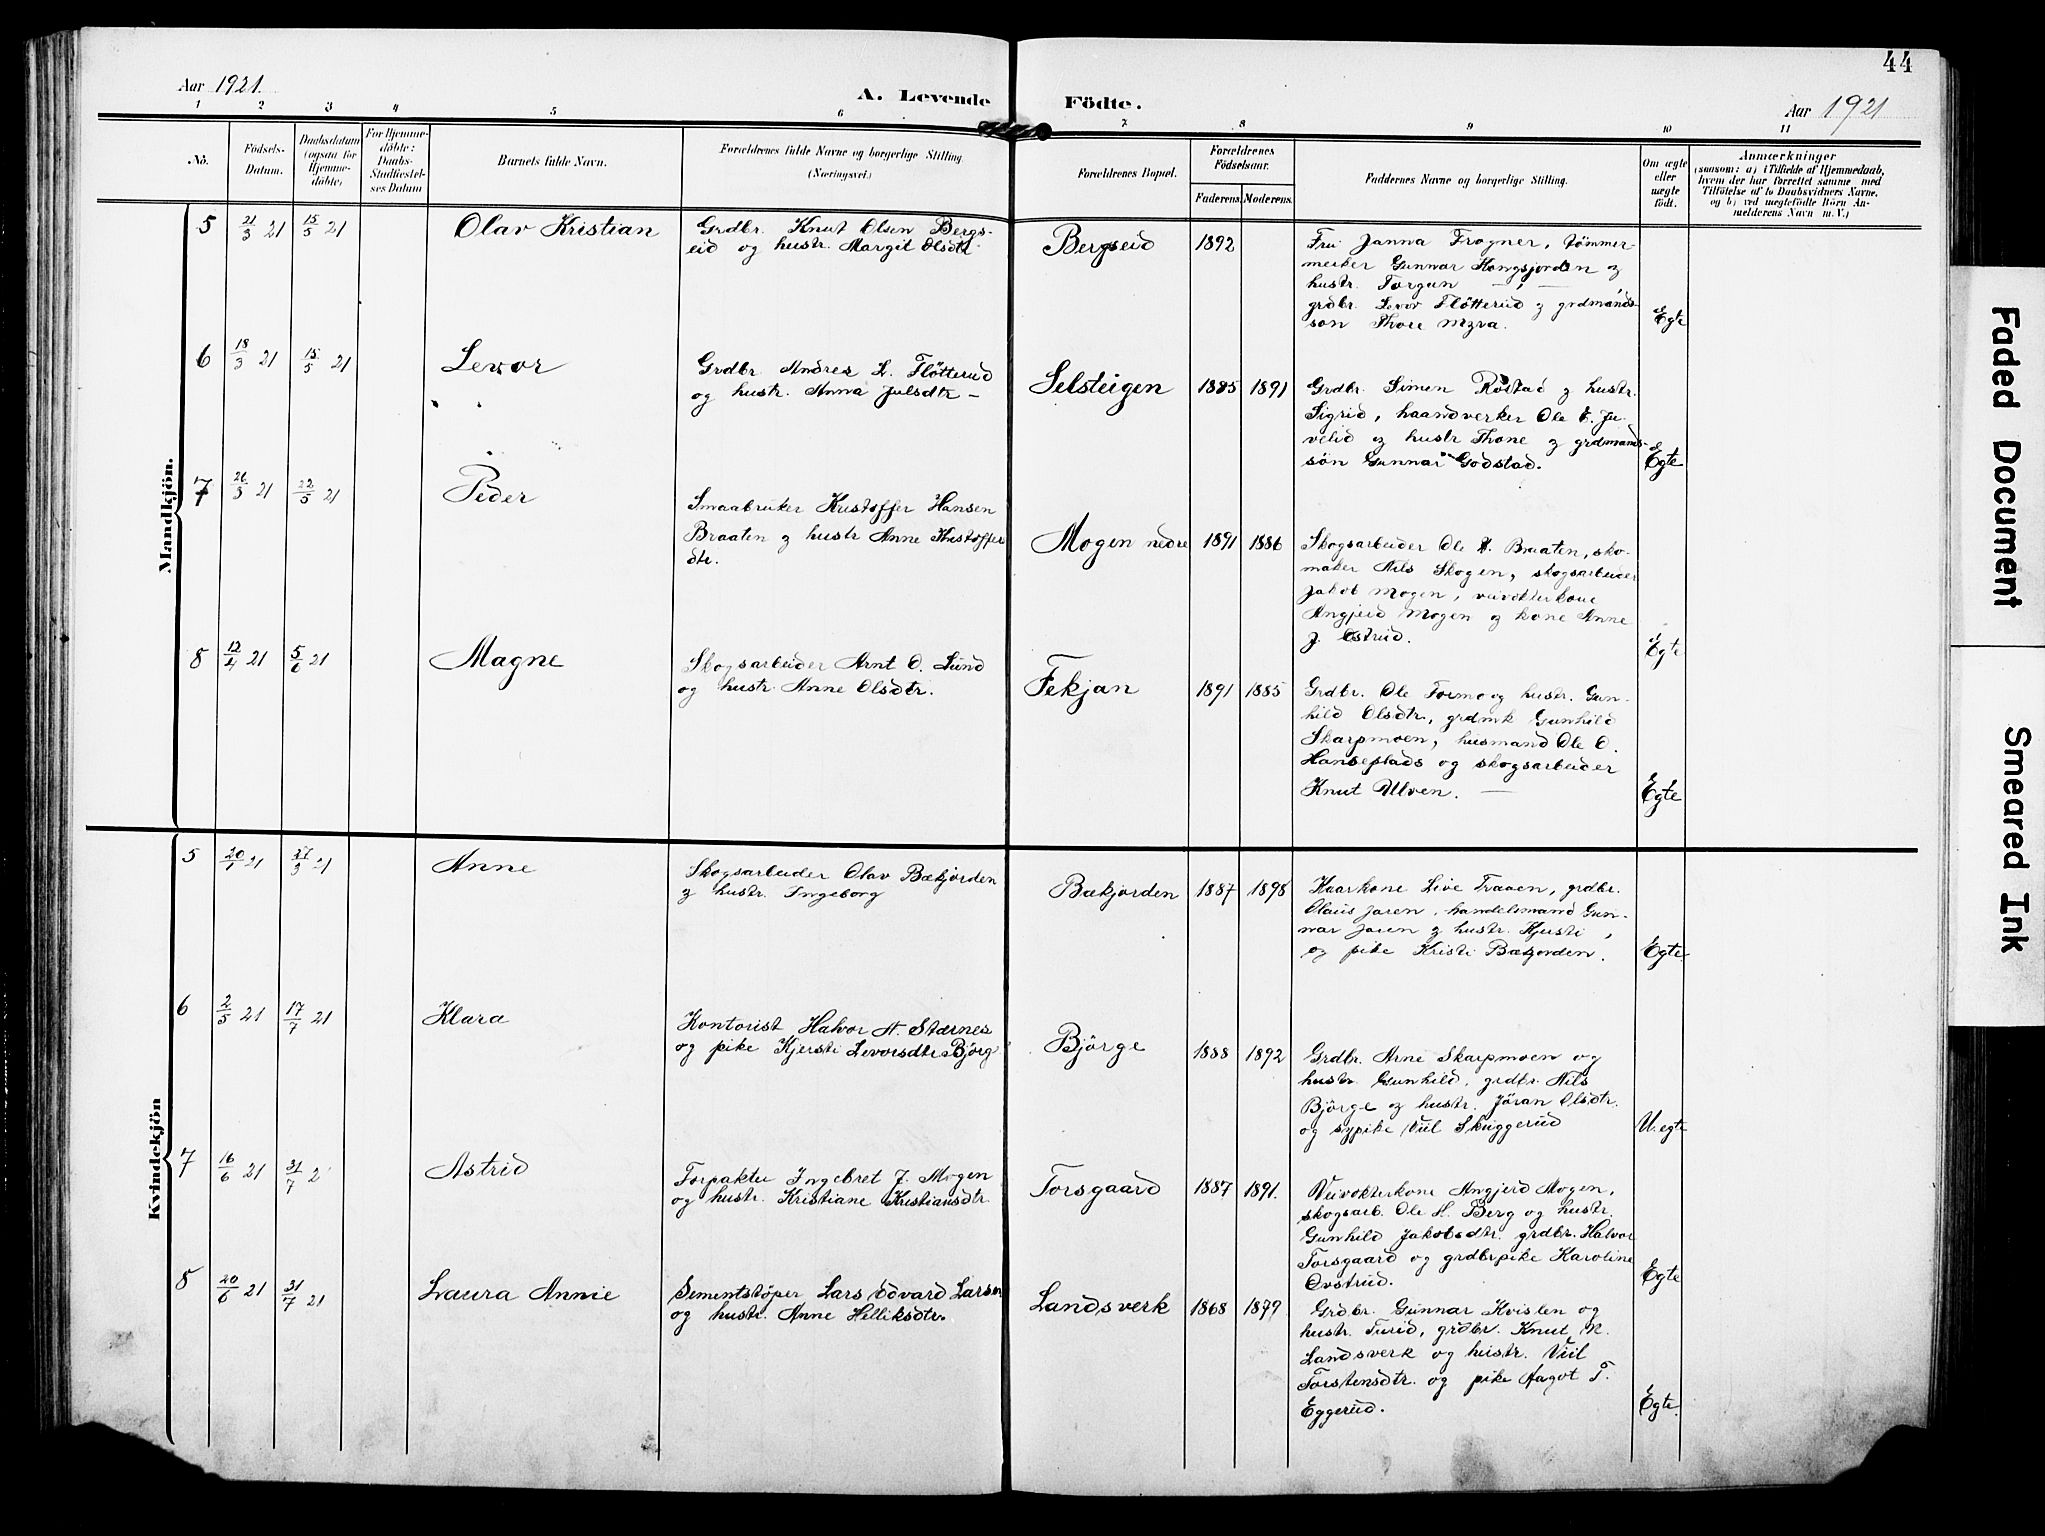 44
Aar 1921.
A. Levende
Födte.
Aar 1921
1 2 3 4 5 6 7 8 9 10 11
No.
Födsels-
Datum.
Daabsdatum
(ogsaa for
Hjemme-
döbte)
For Hjemme-
döbte:
Daabs-
Stadfæstel-
ses Datum
Barnets fulde Navn.
Forældrenes fulde Navne og borgerlige Stilling.
(Næringsvei.)
Forældrenes Bopæl.
Forældrenes
Födselsaar.
Faderens. Moderens.
Faddernes Navne og borgerlige Stilling.
Om ægte
eller
uægte
födt.
Anmærkninger
(saasom: a) i Tilfælde af Hjemmedaab,
hvem der har forrettet samme med
Tilföielse af to Daabsvidners Navne,
og b) ved uægtefödte Börn An-
melderens Navn m. V.)
Mandkjön.
5 21/3 21 15/5 21 Olav Kristian
Grdbr. Knut Olsen Bergs-
eid og hustr. Margit Olsdtr.
Bergseid 1892
Fru Janna Frogner, tömmer-
merker Gunnar Kongsjorden og
hustr. Torgun — " —
grdbr. Levor Flötterud og grdmands-
son Thore Myra.
Egte
6 18/3 21 15/5 21 Levor
Grdbr Andres L. Flötterud
og hustr. Anna Julsdtr —
Selsteigen 1885 1891
Grdbr. Simen Rostad og hustr.
Sigrid, haandverker Ole E. Ju-
velid og hustr Thone og grdmands-
sön Gunnar Godstad.
Egte
7 26/3 21 22/5 21 Peder
Smaabruker Kristoffer Hansen
Braaten og hustr Anne Kristoffer
dtr.
Mogen nedre 1891 1886
Skogsarbeider Ole Braaten, sko-
maker Nils Skogen, skogsarbeider
Jakob Mogen, veivokterkone
Angjerd Mogen og kone Anne
J. Ostrud.
Egte
8 12/4 21 5/6 21 Magne
Skogsarbeider Arnt O. Lund
og hustr Anne Olsdtr.
Fekjan 1891 1885
Grdbr. Ole Formo og hustr. Gun-
hild Olsdtr., grdmk Gunhild
Skarpmoen, husmand Ole O.
Hanseplads og skogsarbeider
Knut Ulven. —
Egte
Kvindekjön
5 20/1 21 27/3 21 Anne
Skogsarbeider Olav Bækjorden
og hustr. Ingeborg
Bækjorden 1887 1898
Kaarkone Live Traaen, grdbr.
Olaus Jaren, handelsmand Gun-
nar Jaren og hustr. Kjersti,
og pike Kristi Bækjorden.
Egte.
6 2/5 21 17/7 21 Klara
Kontorist Halvor H. Stærnes
og pike Kjersti Levorsdtr Björge
Björge 1888 1892
Grdbr. Arne Skarpmoen og
hustr. Gunhild, grdbr. Nils
Björge og hustr. Jöran Olsdtr.
og sypike Viil Skuggerud
U.egte
7 16/6 21 31/7 2 Astrid
Forpakter Ingebret J. Mogen
og hustr. Kristiane Kristiansdtr.
Torsgaard 1887 1891.
Veivokterkone Angjerd Mogen,
skogsarb. Ole H. Berg og hustr.
Gunhild Jakobsdtr. grdbr. Halvor
Torsgaard og grdbrpike Karoline
Ovstrud.
Egte
8 20/6 21 31/7 21 Laura Annie
Sementstöper Lars Edvard Larsen
og hustr. Anne Helliksdtr.
Landsverk 1868 1879
Grdbr. Gunnar Kvislen og
hustr. Turid, grdbr. Knut K.
Landsverk og hustr. Viil
Torstensdtr. og pike Aagot T.
Eggerud.
Egte.
Faded Document
Smeared Ink